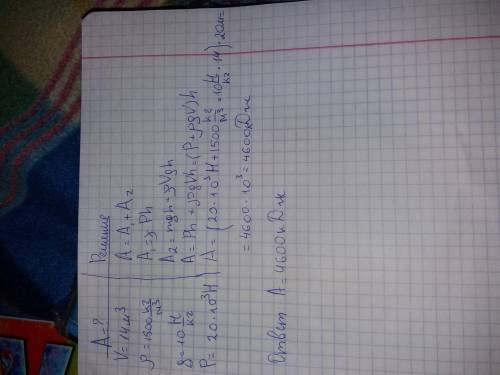 A=?
V=14м³
ρ=1500 кг/м³
g=10 Н/кг
P=20·10³Н
Решение
A=A₁+A₂
A₁=Ph
A₂=mgh=ρVgh
A=Ph+ρgVh=(P+ρgV)h
A=(20·10³Н+1500 кг/м³·10 Н/кг·14)·20м=
=4600·10³=4600кДж
Ответ A=4600кДж